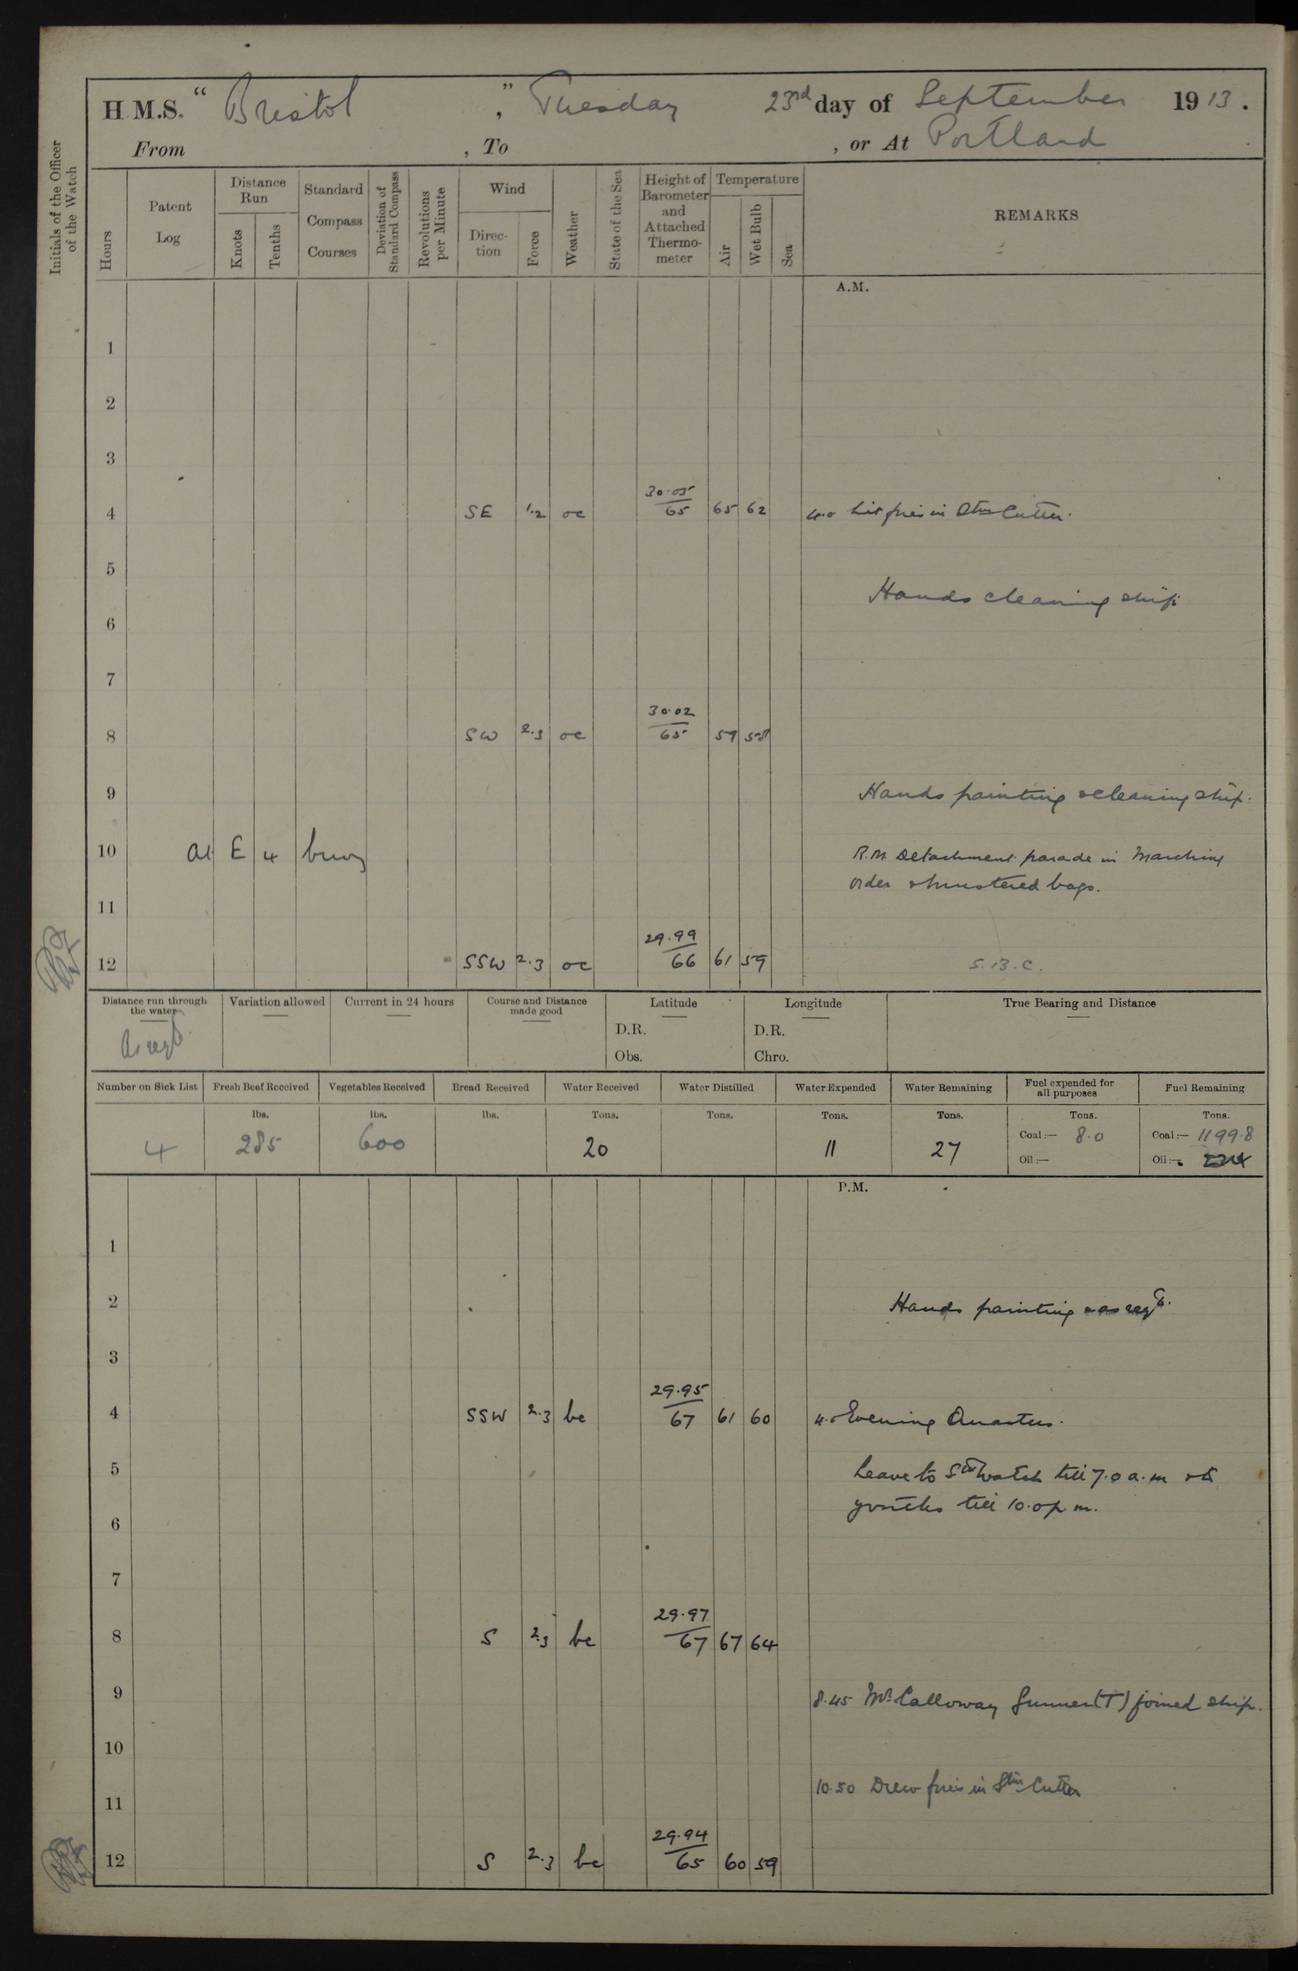 H.M.S. "Bristol", Tuesday 23rd day of September 1913.
From , To , or At Portland
Initials of the Officer of the Watch
Hours
Patent Log
Distance Run
Knots
Tenths
Standard Compass Courses
Deviation of Standard Compass
Revolutions per Minute
Wind
Direction
Force
Weather
State of the Sea
Height of Barometer and Attached Thermometer
Temperature
Air
Wet Bulb
Sea
REMARKS
A.M.
1
2
3
4 SE 1.2 oc 30.05 65 65 62 4.0 Lit fires in Stm Cutter.
5
Hands cleaning ship
6
7
8 SW 2.3 oc 30.02 65 59 58
9 Hands painting & cleaning ship.
10 At E 4 buoy R.M. Detachment parade in Marching
order & mustered bags.
11
12 SSW 2.3 oc 29.99 66 61 59 S.B.C.
Distance run through the water
Variation allowed
Current in 24 hours
Course and Distance made good
Latitude
D.R.
Obs.
Longitude
D.R.
Chro.
True Bearing and Distance
As reqd
Number on Sick List
Fresh Beef Received
Vegetables Received
Bread Received
Water Received
Water Distilled
Water Expended
Water Remaining
Fuel expended for all purposes
Fuel Remaining
lbs. lbs. lbs. Tons. Tons. Tons. Tons. Tons. Tons.
4 285 600 20 11 27 Coal:— 8.0 Coal:— 1199.8
Oil:— Oil:—
P.M.
1
2 Hands painting & as reqd.
3
4 SSW 2.3 bc 29.95 67 61 60 4.0 Evening Quarters.
5 Leave to Std watch till 7.0 a.m. &
youths till 10.0 p.m.
6
7
8 S 2.3 bc 29.97 67 67 64
9 8.45 Mr Calloway Gunner (T) joined ship.
10
10.50 Drew fires in Stm Cutter
11
12 S 2.3 bc 29.94 65 60 59